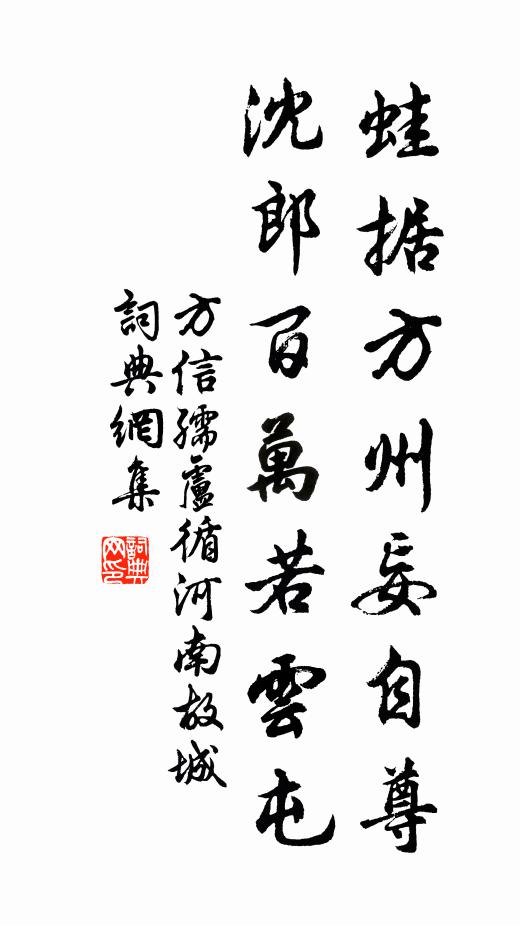 蛙据方州妄自尊
沈郎百萬若雲屯
方信孺盧循河南故城
詞典網集
詞典网印